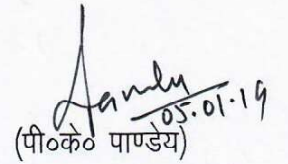 05.01.19
(पी०के० पाण्डेय)